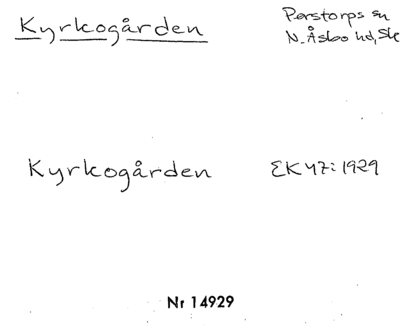 Kyrkogården
Perstorps sn
N. Åsbo hd, Sk
Kyrkogården
EK47:1929
Nr 14929